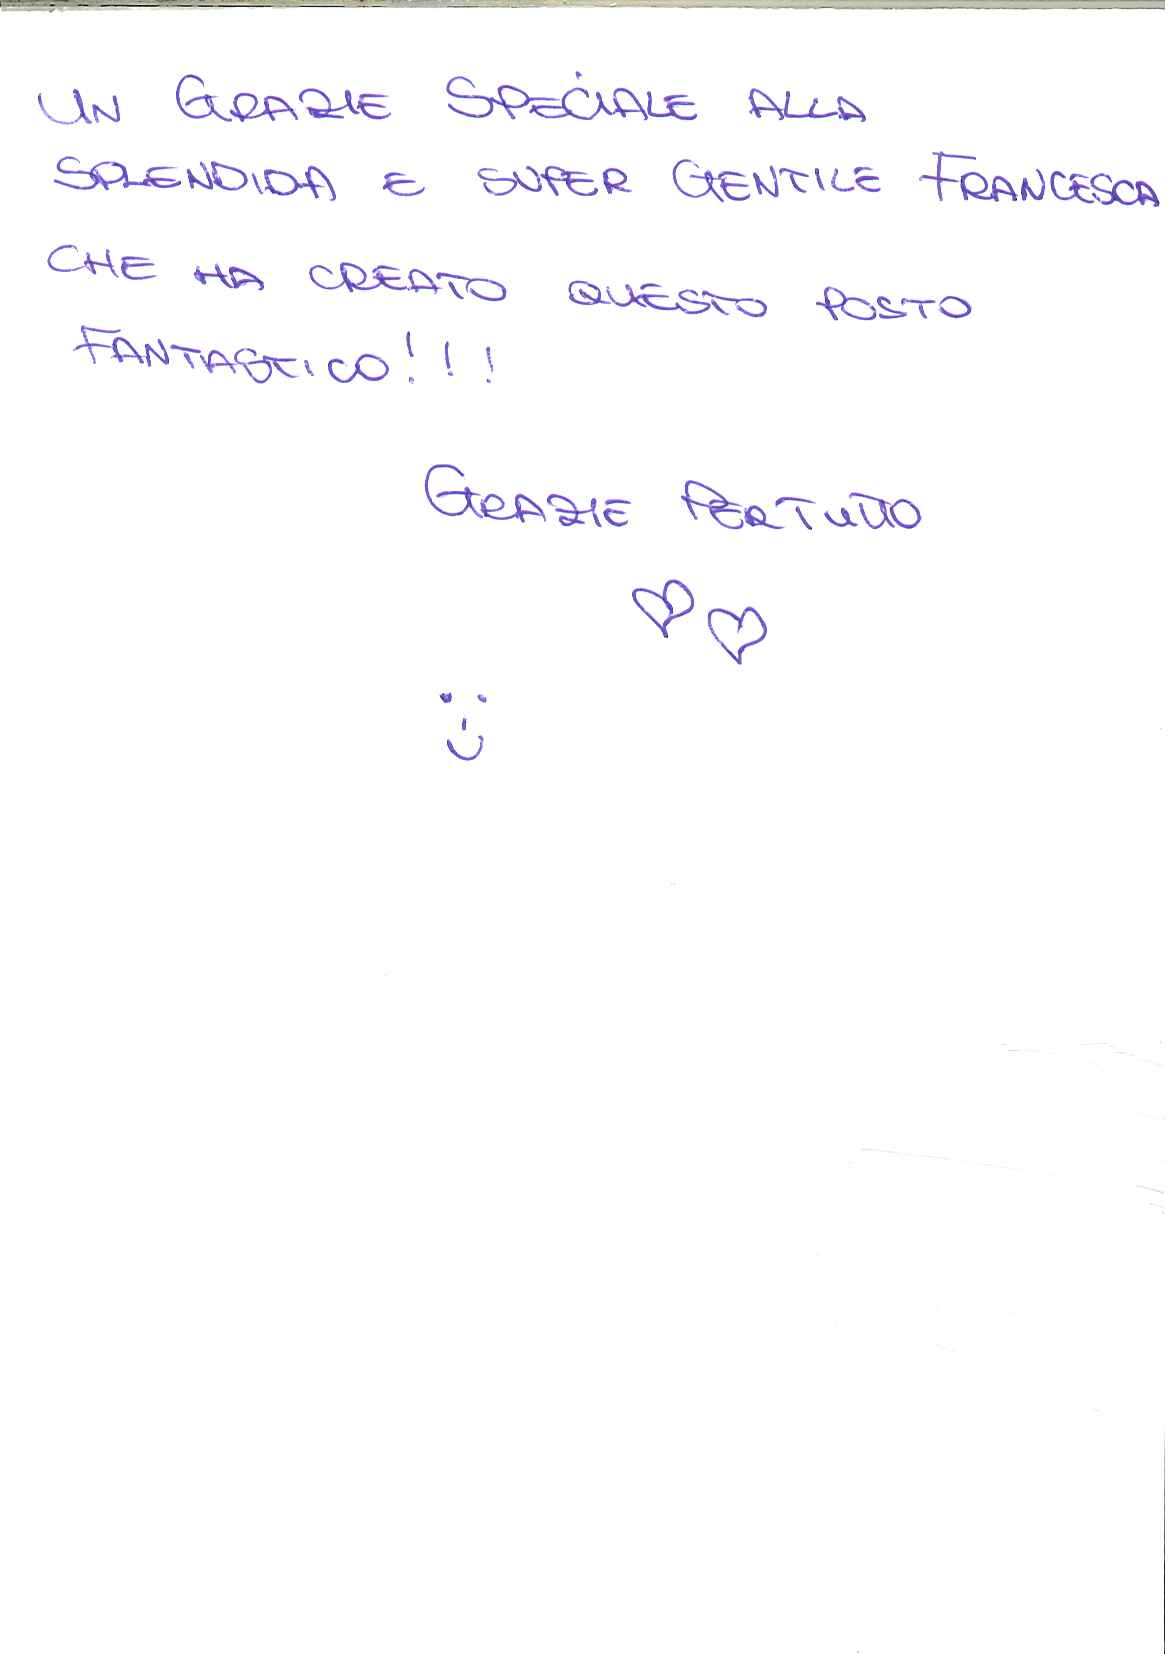 UN GRAZIE SPECIALE ALLA
SPLENDIDA E SUPER GENTILE FRANCESCA
CHE HA CREATO QUESTO POSTO
FANTASTICO!!!
GRAZIE PER TUTTO